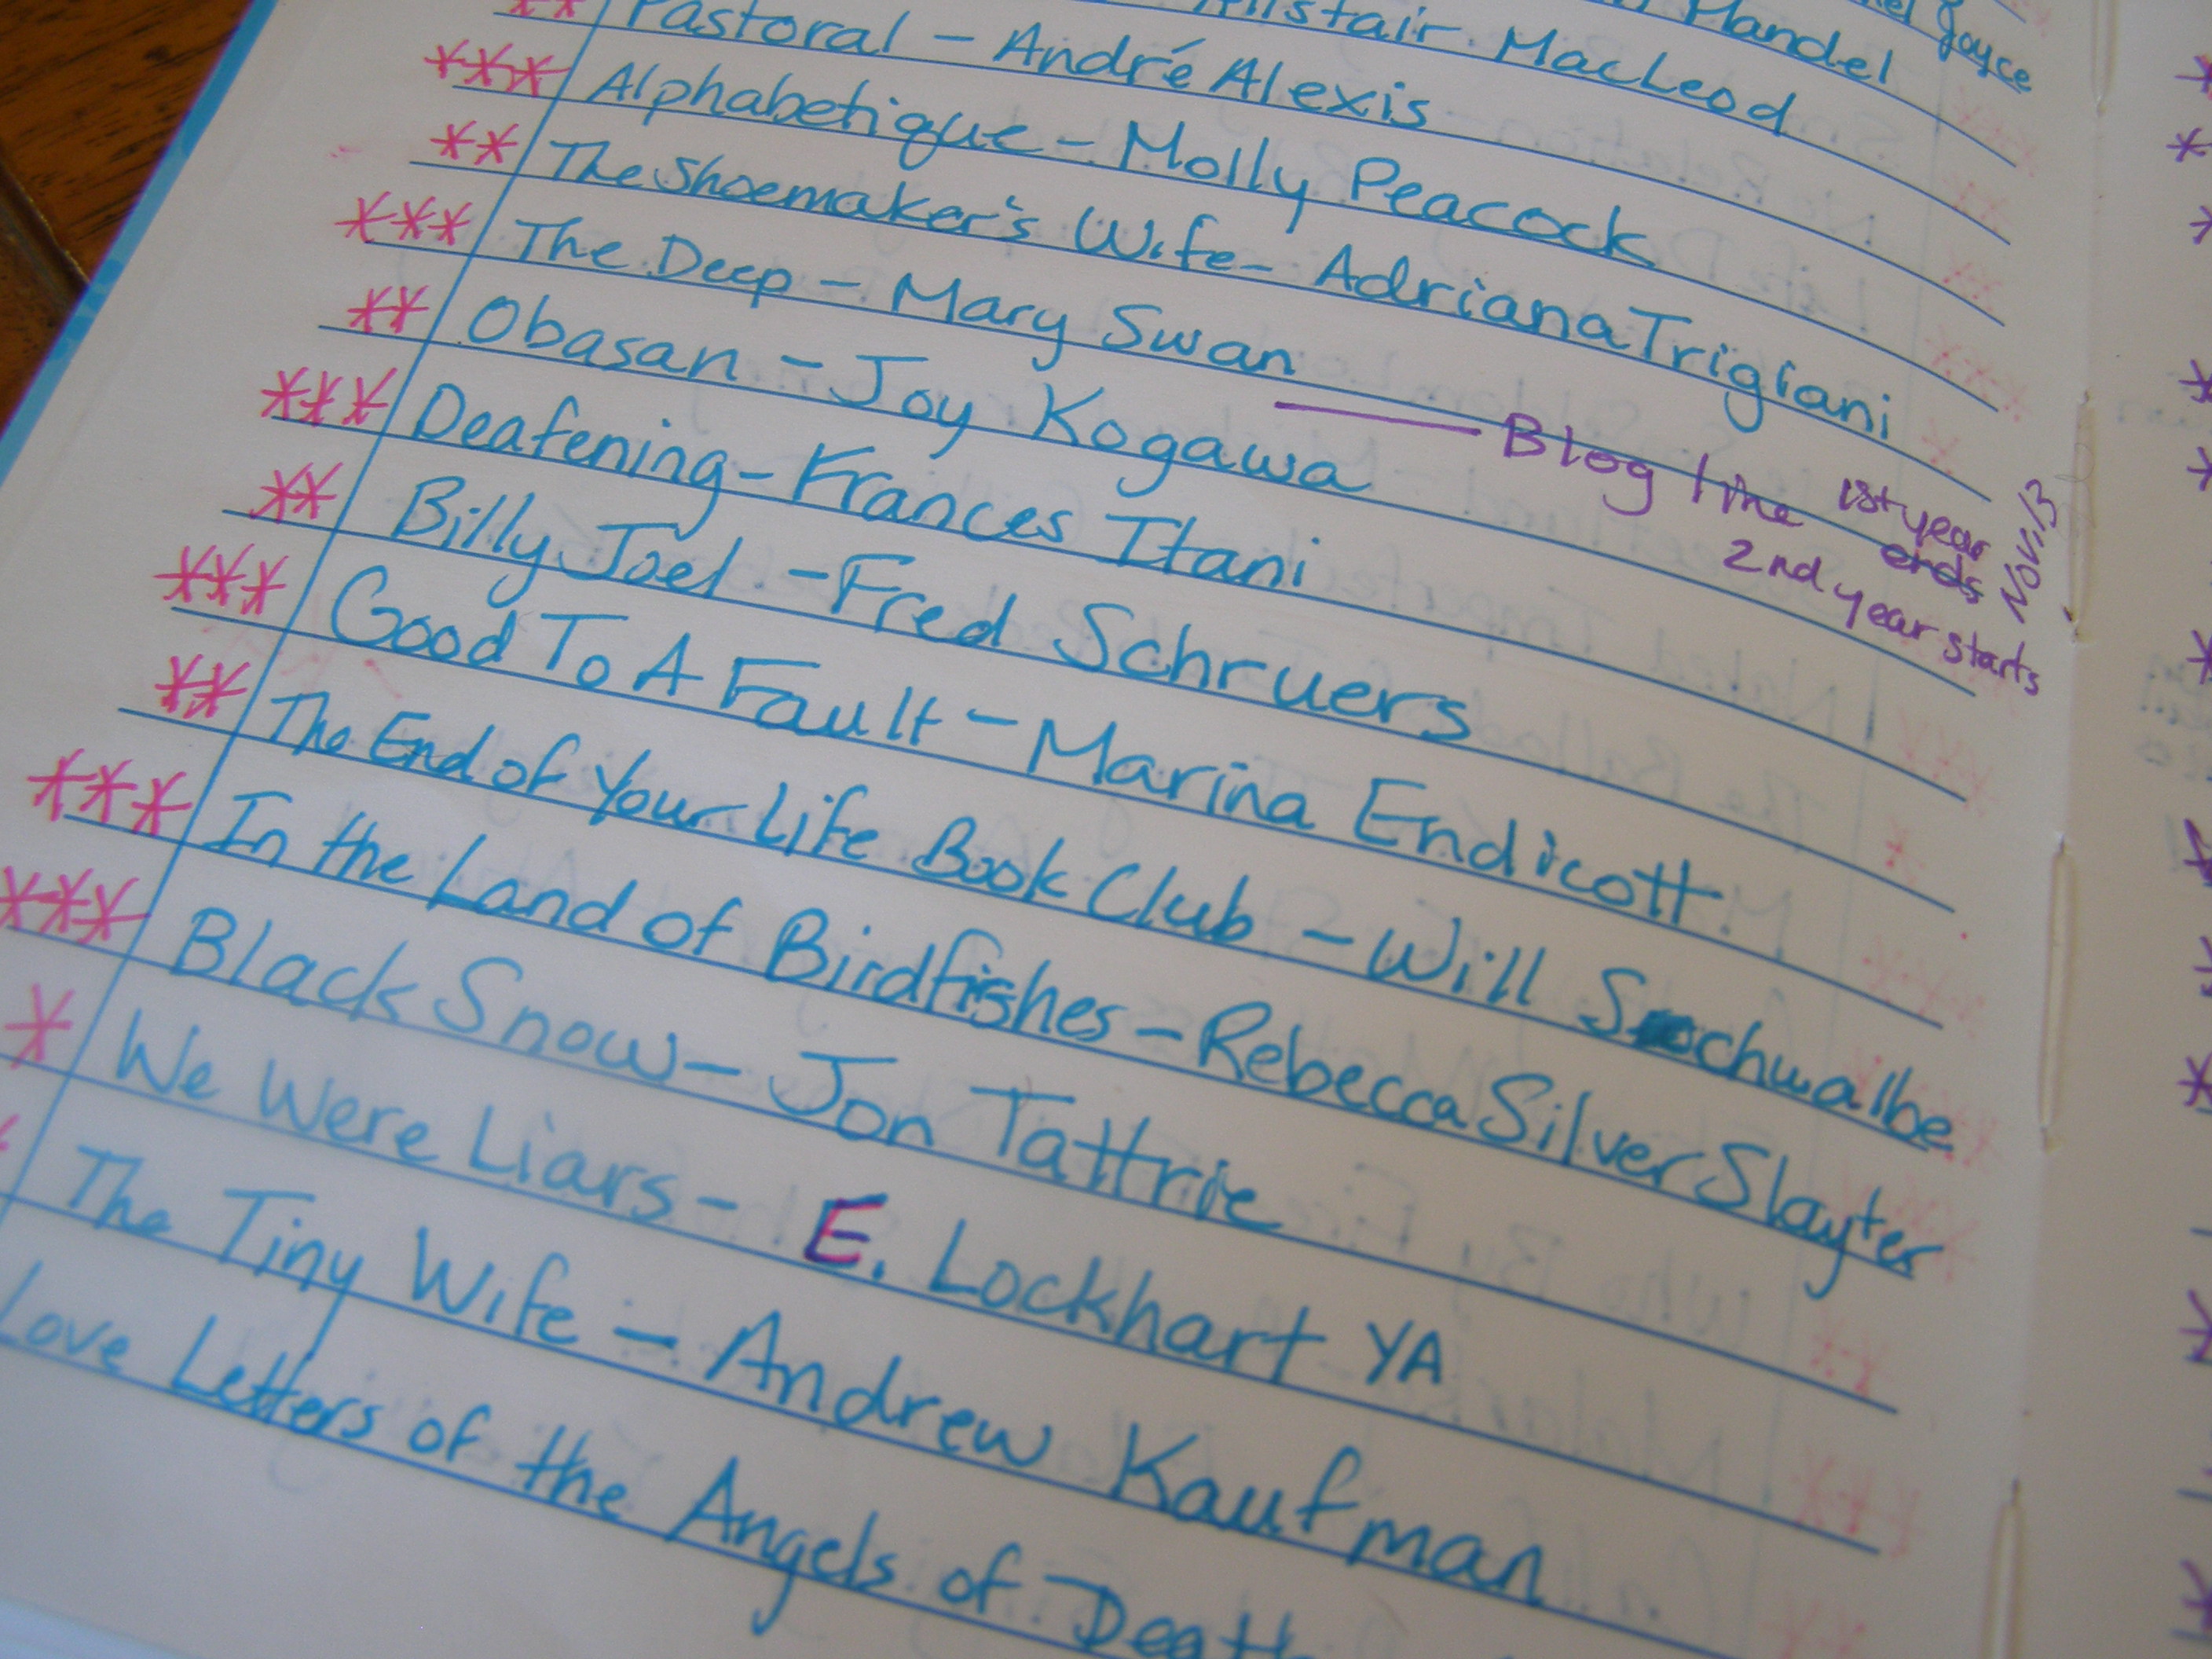 Joyce
Mandel
MacLeod
** Pastoral - André Alexis
*** Alphabetique - Molly Peacock
** The Shoemaker's Wife - Adriana Trigiani
*** The Deep - Mary Swan
Blog line 1st year ends Nov. 13
2nd year starts
** Obasan - Joy Kogawa
*** Deafening - Frances Itani
** Billy Joel - Fred Schruers
*** Good To A Fault - Marina Endicott
** The End of Your Life Book Club - Will Schwalbe
*** In the Land of Birdfishes - Rebecca Silver Slayter
*** Black Snow - Jon Tattrie
* We Were Liars - E. Lockhart YA
The Tiny Wife - Andrew Kaufman
Love Letters of the Angels of Death